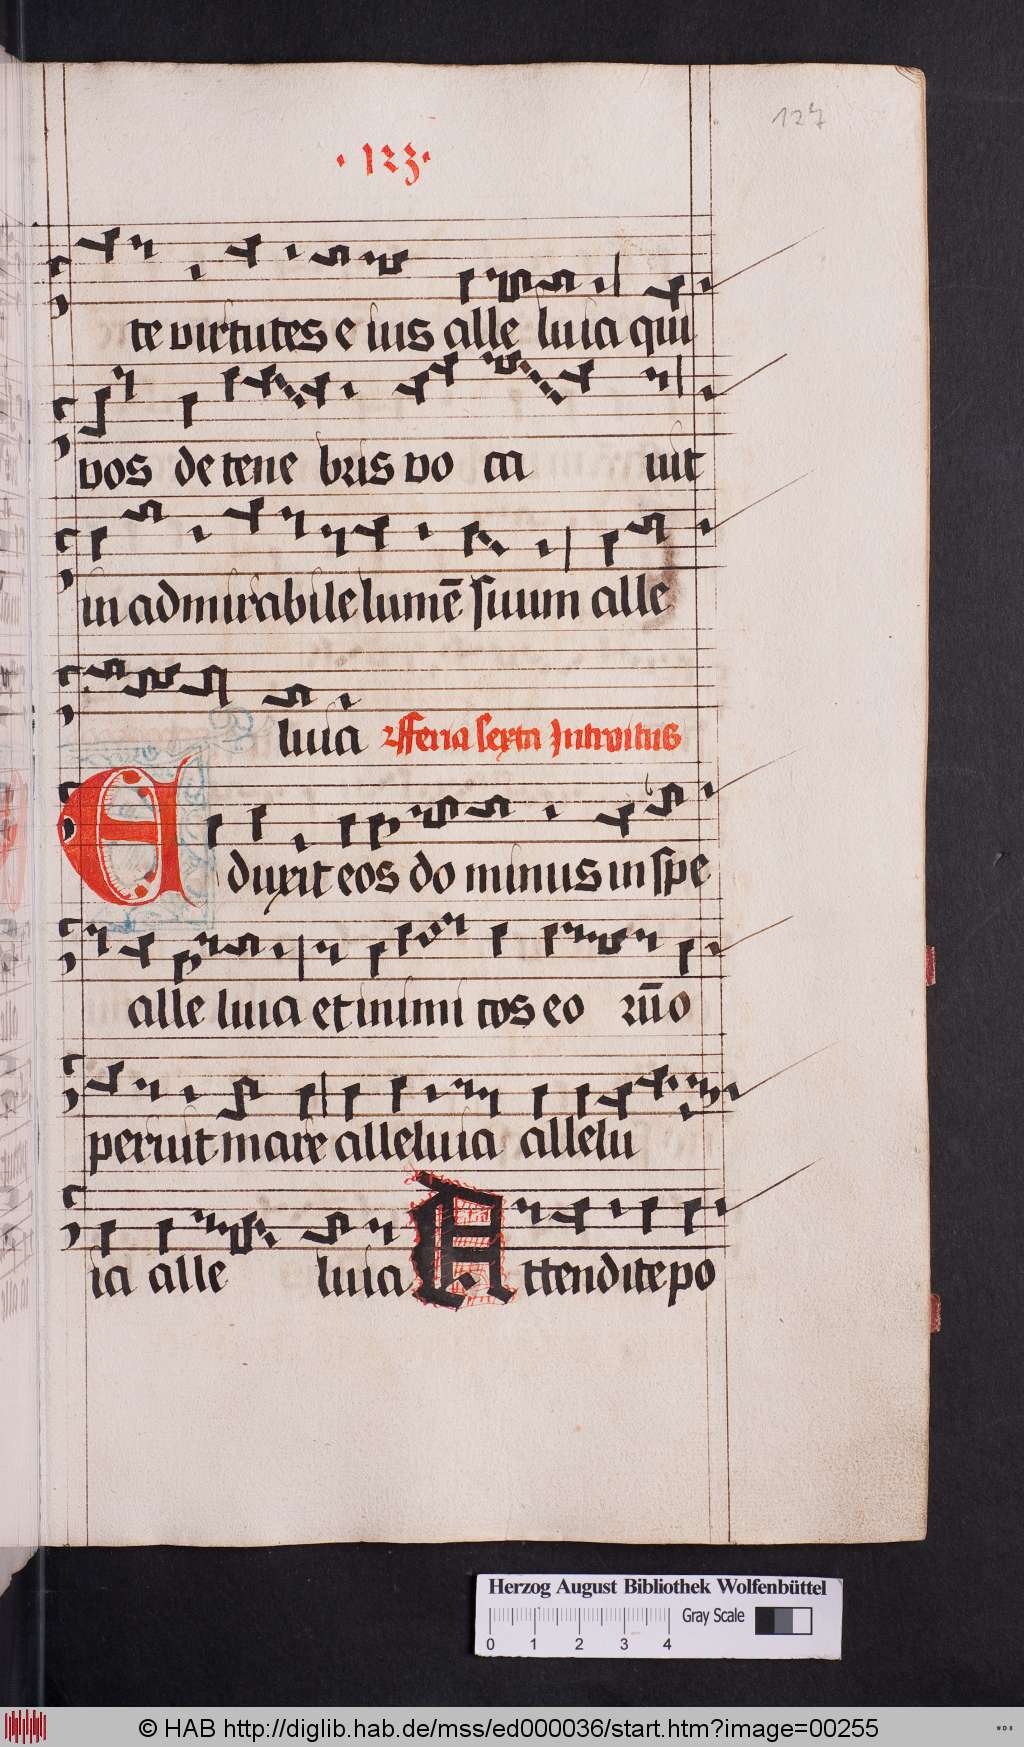 127
·123·
te virtutes e ius alle luia qui
vos de tene bris vo ca uit
in admirabile lumē suum alle
luia fferia sexta Introitus
Eduxit eos do minus in spe
alle luia et inimi cos eo rūo
peruit mare alleluia allelu
ia alle luia Attendite po
Herzog August Bibliothek Wolfenbüttel
Gray Scale
0 1 2 3 4
© HAB http://diglib.hab.de/mss/ed000036/start.htm?image=00255